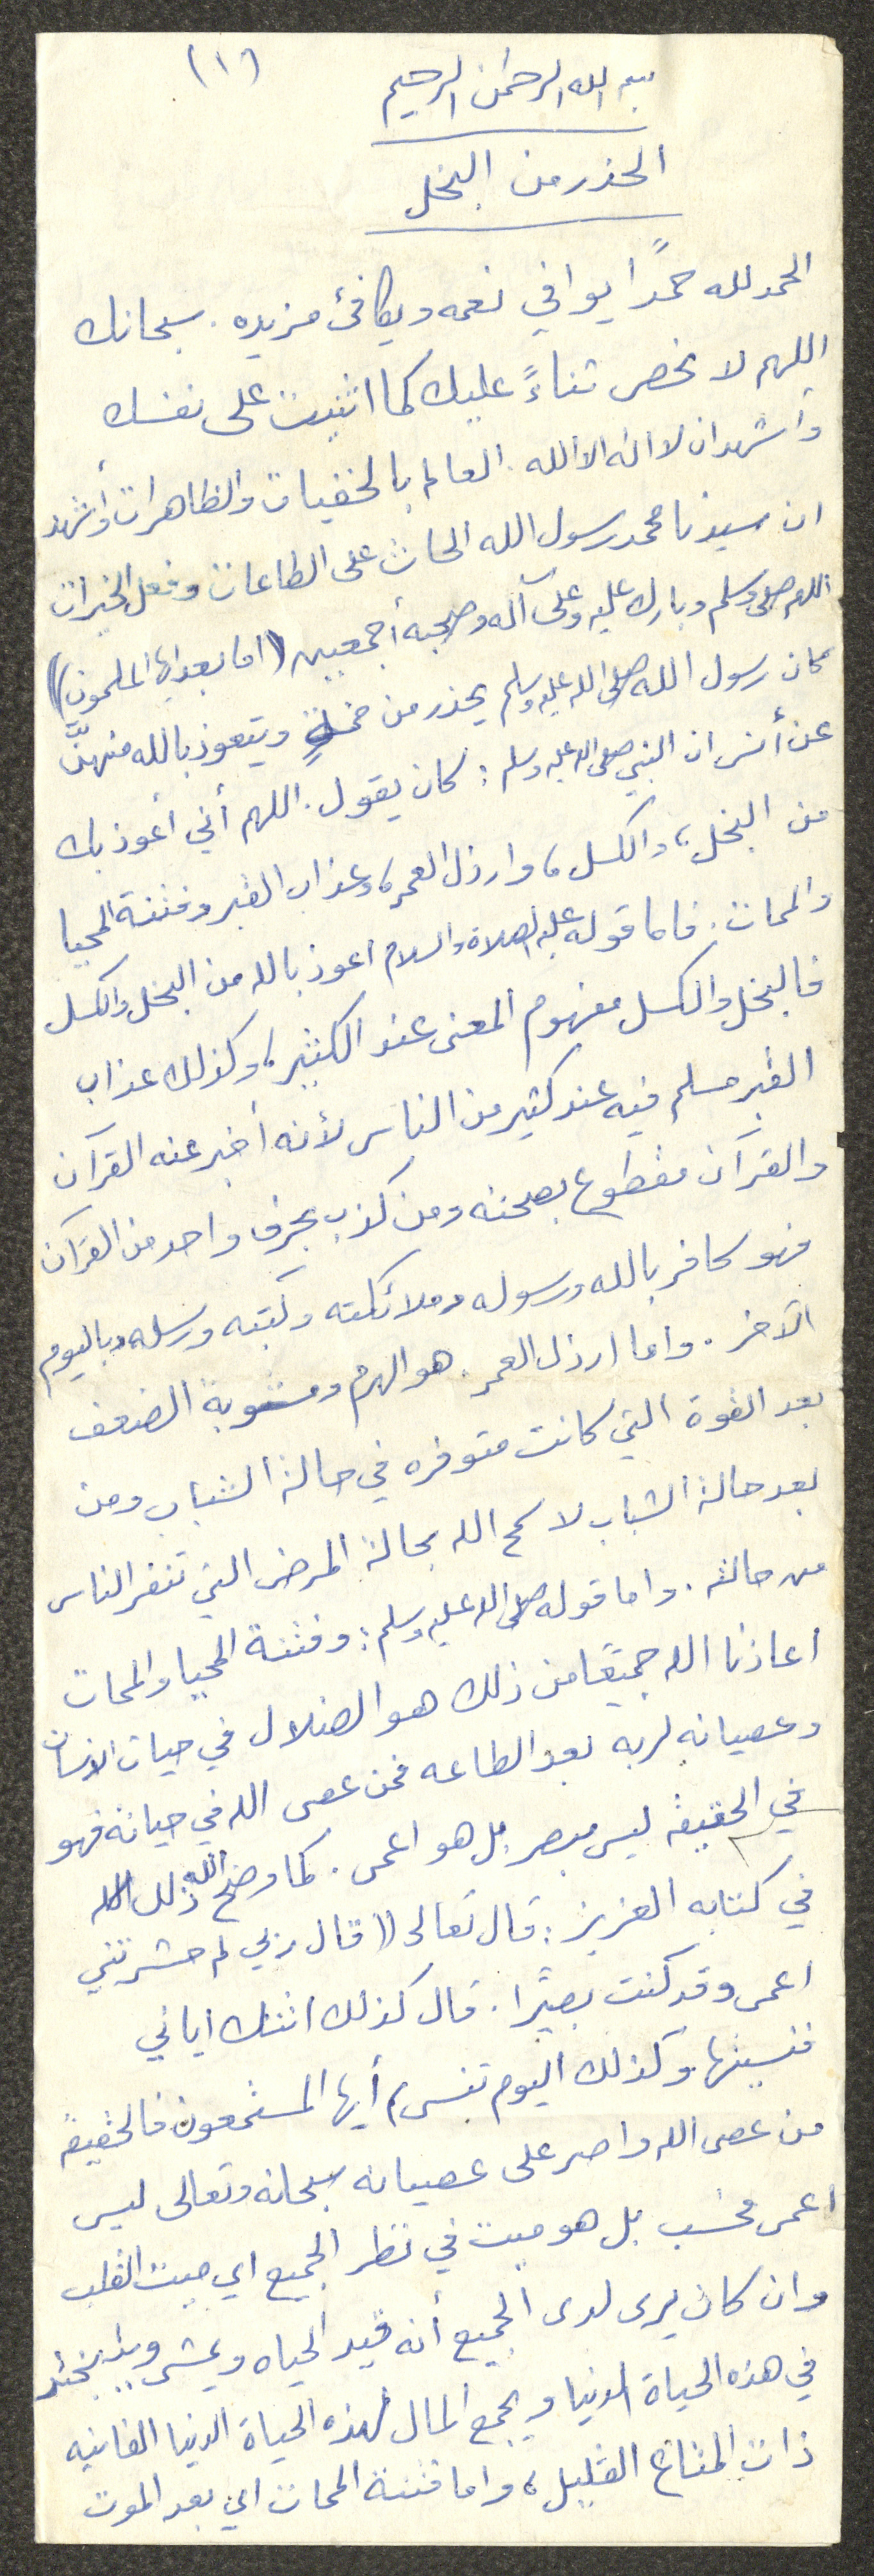 (١)
بسم الله الرحمن الرحيم
الحذر من البخل
الحمد لله حمدًا يوافي نعمه ويكافئ مزيده. سبحانك
اللهم لا نحص ثناءً عليك كما اثنيت على نفسك
وأشهد ان لا اله الا الله. العالم بالخفيات والظاهرات وأشهد
ان سيدنا محمد رسول الله الحاث على الطاعات وفعل الخيرات
اللهم صلى وسلم وبارك عليه وعلى آله وصحبه أجمعين (اما بعد ايها المسلمون))
كان رسول الله صلى الله عليه وسلم يحذر من خمسةٍ ويتعوذ بالله منهنَّ
عن أنس ان النبي صلى الله عليه وسلم: كان يقول. اللهم أني أعوذ بك
من البخل، والكسل، وارذل العمر، وعذاب القبر وفتنة المحيا
والممات. فاما قوله عليه الصلاة والسلام اعوذ بالله من البخل والكسل
فالبخل والكسل مفهوم المعنى عند الكثير، وكذلك عذاب
القبر مسلم فيه عند كثير من الناس لأنه أخبر عنه القرآن
والقرآن مقطوع بصحته ومن كذب بحرف واحد من القرآن
فهو كافر بالله ورسوله وملائكته وكتبه ورسله وباليوم
الآخر. واما ارذل العمر. هو الهرم ومشوبة الضعف
بعد القوة التي كانت متوفره في حالة الشباب ومن
بعد حالة الشباب لا سمح الله بحالة المرض التي تنفر الناس
من حالته. واما قوله صلى الله عليه وسلم: وفتنة المحيا والممات
اعاذنا الله جميعًا من ذلك هو الضلال في حيات الانسان
وعصيانه لربه بعد الطاعه فمن عصى الله في حياته فهو
في الحقيقة ليس مبصر بل هو اعمى. كما وضح الله ذلك
في كتابه العزيز: قال تعالى ((قال ربي لم حشرتني
اعمى وقد كنت بصيرًا. قال كذلك اتتك اياتي
فنسيتها وكذلك اليوم تنسى) أيها المستمعون فالحقيقة
من عصى الله واصر على عصيانه سبحانه وتعالى ليس
اعمى فحسب بل هو ميت في نظر الجميع اي ميت القلب
وان كان يرى لدى الجميع أنه قيد الحياه ويمشي
في هذه الحياة الدنيا ويجمع المال لهذه الحياة الدنيا الفانيه
ذات المتاع القليل، واما فتنة الممات اي بعد الموت